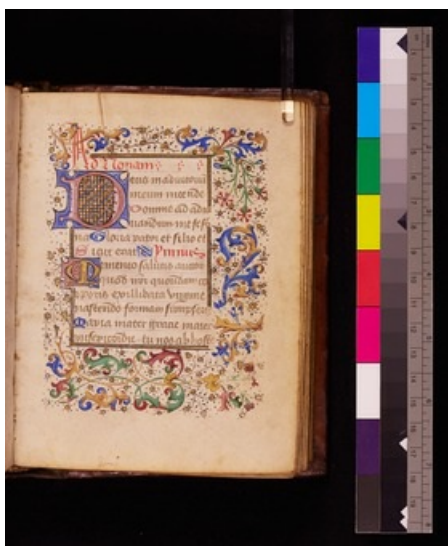 Ad Nonam
Deus in adiutoriu
meum intende
Domine ad adiu
uandum me festi
na Gloria patri et filio et
Sicut erat Ymnus
Memento salutis auctor
quod nostri quondam co
rporis ex illibata virgine
nascendo formam sumpseris
Maria mater gratie mater
misericordie tu nos ab hoste